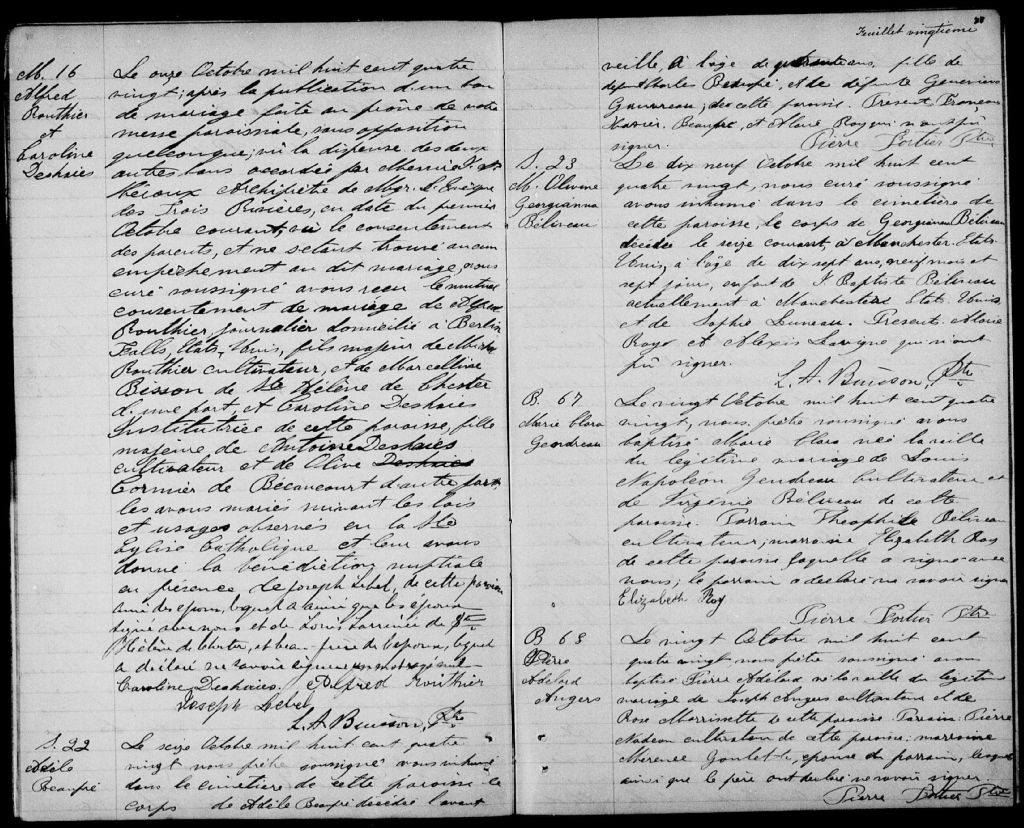 M. 16
Alfred
Routhier
et
Caroline
Deshaies
Le onze Octobre mil huit cent quatre
vingt; après la publication d'un ban
de mariage faite au prône de notre
messe paroissiale, sans opposition
quelconque; vû la dispense des deux
autres bans accordée par Messire
Archiprêtre de Mgr. L. Evêque
des Trois Rivières, en date du premier
Octobre courant, vû le consentement
des parents, et ne s'etant trouvé aucun
empêchement au dit mariage, nous
curé soussigné avons recu le mutuel
consentement de mariage de Alfred
Routhier, journalier domicilié à Berlin
Falls, Etats-Unis, fils majeur de
Routhier cultivateur, et de Marcelline
Bisson de Ste Hélène de Chester
d'une part, et Caroline Deshaies
Institutrice de cette paroisse, fille
majeure de Antoine Deshaies
cultivateur et de Olive Deshaies
Cormier de Bécancourt d'autre part,
les avons mariés suivant les lois
et usages observés en la Ste
Eglise Catholique et leur avons
donné la bénédiction nuptiale
en présence de Joseph Lebel, de cette paroisse
ami des epoux, lequel a signé que les époux
signé avec nous et de Louis de Ste
Hélène de Chester, et beau-frère de l'epoux, lequel
a déclaré ne savoir signer
Caroline Deshaies. Alfred Routhier
Joseph Lebel
L. A. Buisson, Ptre
S. 22
Adèle
Beaupré
Le seize Octobre mil huit cent quatre
vingt nous prêtre soussigné avons inhumé
dans le cimetière de cette paroisse le
corps de Adèle Beaupré décédée l'avant
Feuillet vingtieme
veille, à l'âge de ans, fille de
defunt Charles Beaupré, et de défunte Genevieve
Gauvreau; de cette paroisse. Present François
Xavier Beaupré, et Alarie Roy qui n'ont pû
signer.
Pierre Portier Ptre
S. 23
M. Olivine
Georgianna
Béliveau
Le dix neuf Octobre mil huit cent
quatre vingt, nous curé soussigné
avons inhumé dans le cimetière de
cette paroisse, le corps de Georgianna Béliveau
décédée le seize courant, à Manchester, Etats-
Unis, à l'âge de dix sept ans, neuf mois et
sept jours, enfant de J. Baptiste Béliveau
actuellement à Manchester Etats-Unis
et de Sophie Luneau. Presents Alarie
Roy et Alexis Lavigne qui n'ont
pû signer.
L. A. Buisson, Ptre
B. 67
Marie Clara
Gendreau
Le vingt Octobre mil huit cent quatre
vingt, nous, prêtre soussigné avons
baptisé Marie Clara née la veille
du légitime mariage de Louis
Napoleon Gendreau Cultivateur et
de Virginie Béliveau de cette
paroisse. Parrain Théophile Béliveau
cultivateur; marraine Elizabeth Roy
de cette paroisse laquelle a signé avec
nous; le parrain a déclaré ne savoir signer
Elizabeth Roy
Pierre Portier Ptre
B. 68
Pierre
Adélard
Angers
Le vingt Octobre mil huit cent
quatre vingt nous prêtre soussigné avons
baptisé Pierre Adélard né la veille du légitime
mariage de Joseph Angers cultivateur et de
Rose Morrissette de cette paroisse. Parrain Pierre
Nadeau cultivateur de cette paroisse; marraine
Goulette, epouse du parrain, lesquels
ainsi que le père ont declaré ne savoir signer.
Pierre Portier Ptre